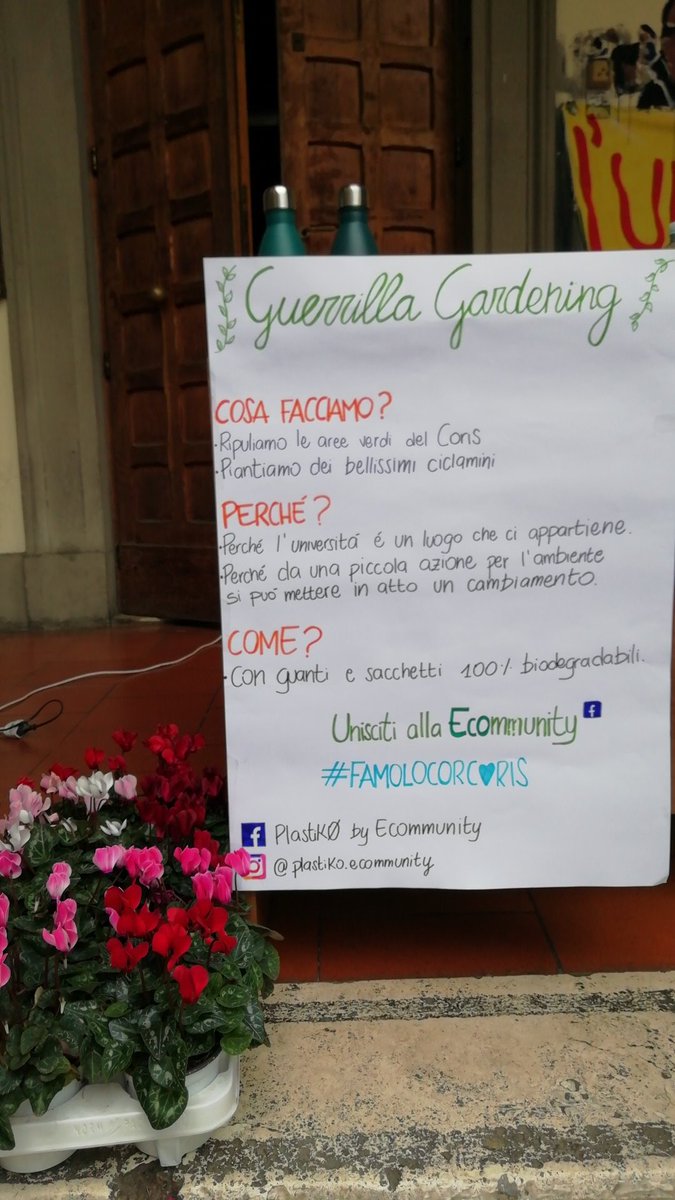 Guerrilla Gardening
COSA FACCIAMO?
·Ripuliamo le aree verdi del Coris
·Piantiamo dei bellissimi ciclamini
PERCHÉ?
·Perché l'universitá é un luogo che ci appartiene.
·Perché da una piccola azione per l'ambiente
si puó mettere in atto un cambiamento.
COME?
·Con guanti e sacchetti 100% biodegradabili.
Unisciti alla Ecommunity
#FAMOLOCORC♥RIS
PlastiKØ by Ecommunity
@plastiko.ecommunity
l'u